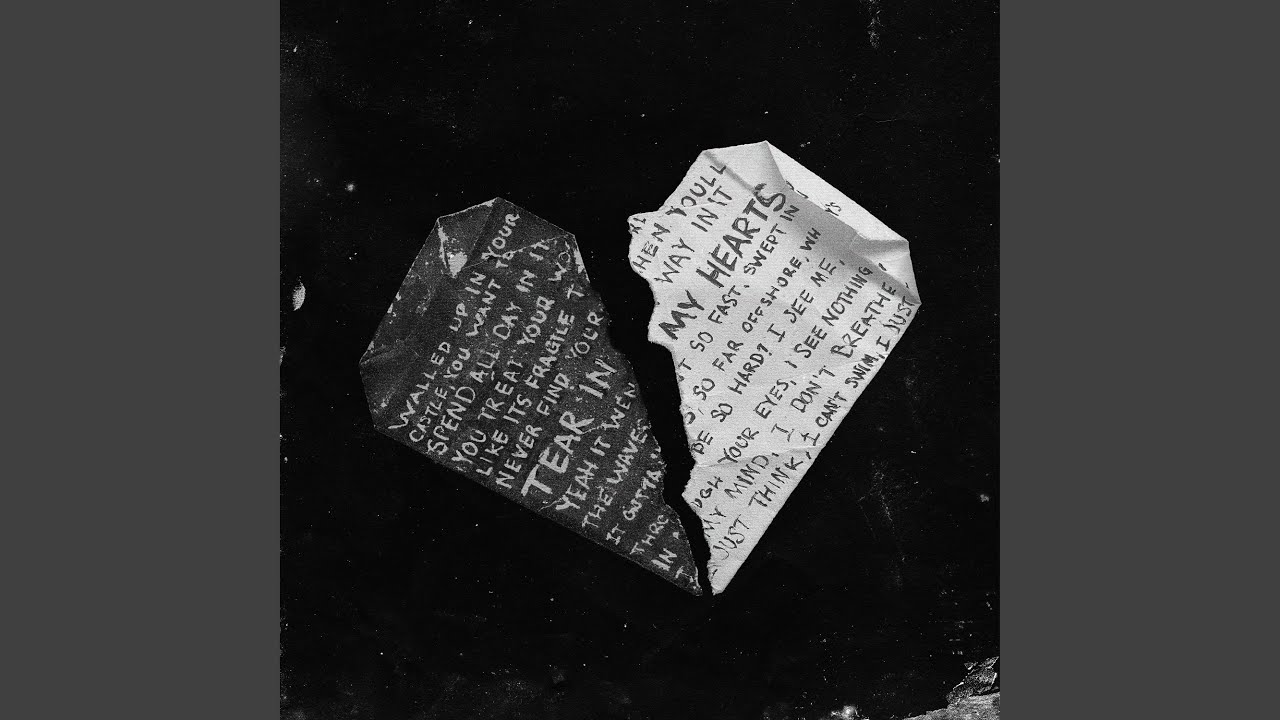 WALLED UP IN YOUR
CASTLE, YOU WANT TO
SPEND ALL DAY IN IT
YOU TREAT YOUR WO
LIKE ITS FRAGILE T
NEVER FIND YOUR
TEAR IN
YEAH IT WEN
THE WAVES
IT GOTTA
THRO
IN
HEN YOULL
WAY IN IT
MY HEARTS
T SO FAST, SWEPT IN
S, SO FAR OFFSHORE, WH
DE SO HARD? I SEE ME,
UGH YOUR EYES, I SEE NOTHING
MY MIND, I DON'T BREATHE,
JUST THINK, I CAN'T SWIM, I JUST